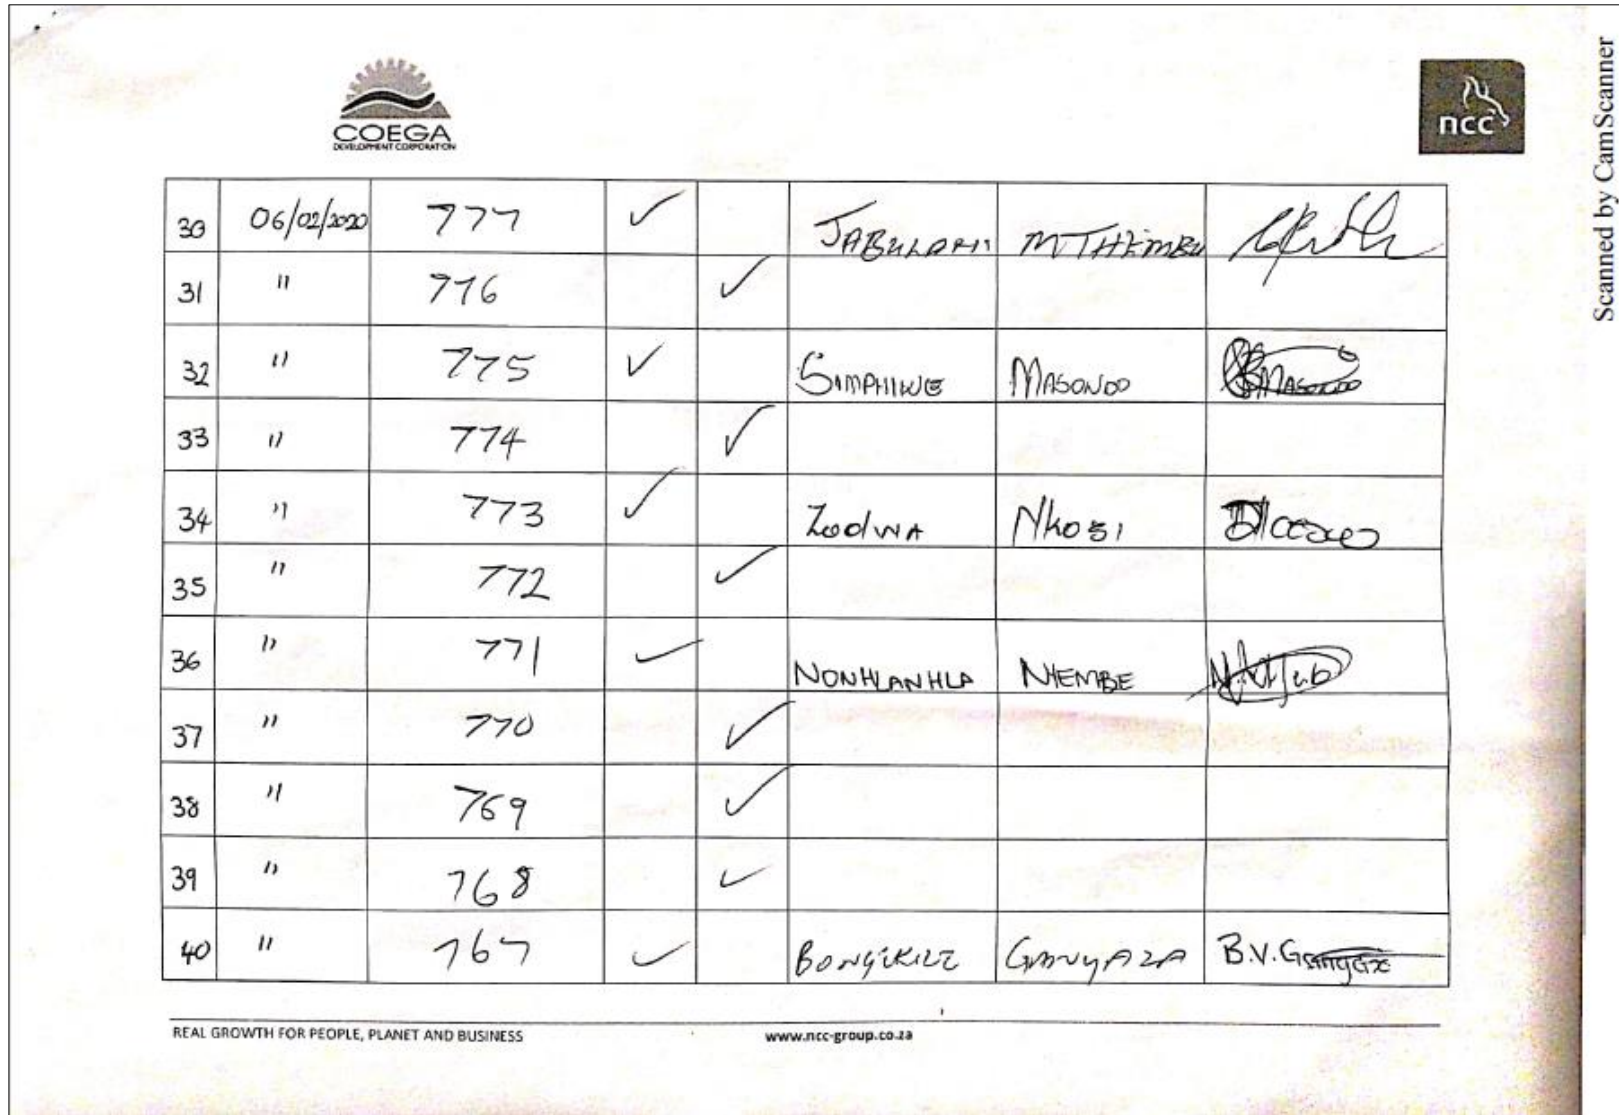 COEGA
DEVELOPMENT CORPORATION
ncc
Scanned by CamScanner
30 06/02/2020 777 ✓ JABULANI MTHEMBU
31 " 776 ✓
32 " 775 ✓ SIMPHIWE MASONDO MASONDO
33 " 774 ✓
34 " 773 ✓ Zodwa Nkosi
35 " 772 ✓
36 " 771 ✓ NONHLANHLA NTEMBE
37 " 770 ✓
38 " 769 ✓
39 " 768 ✓
40 " 767 ✓ BONGEKILE GANYAZA B.V.Ganyaza
REAL GROWTH FOR PEOPLE, PLANET AND BUSINESS www.ncc-group.co.za